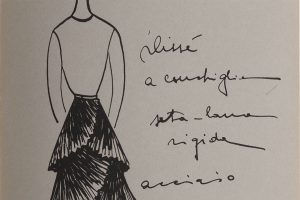 plissé
a conchiglia
seta-lana
rigida
acciaio